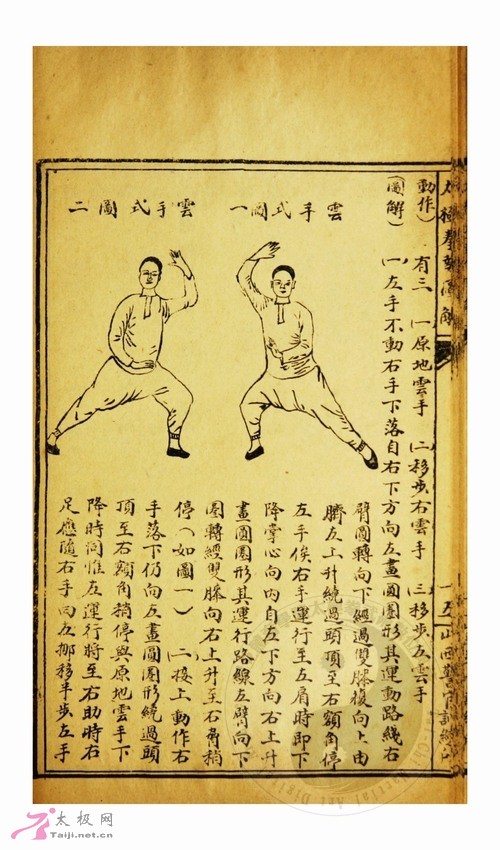 動作) 有三 (一原地雲手 (二移步右雲手 (三移步左雲手
(圖解) (一左手不動右手下落自右下方向左畫圓圈形其運動路綫右
雲手式圖一
雲手式圖二
臂圓轉向下經過雙膝複向上由
臍左上升繞過頭頂至右額角停
左手俟右手運行至左肩時即下
降掌心向内自左下方向右上升
畫圓圈形其運行路線左臂向下
圈轉經雙膝向右上升至右肩稍
停(如圖一) (二接上動作右
手落下仍向左畫圓圈形繞過頭
頂至右額角稍停與原地雲手下
降時同惟左運行將至右助時右
足應隨右手向左挪移半步左手
太极网
Taiji.net.cn